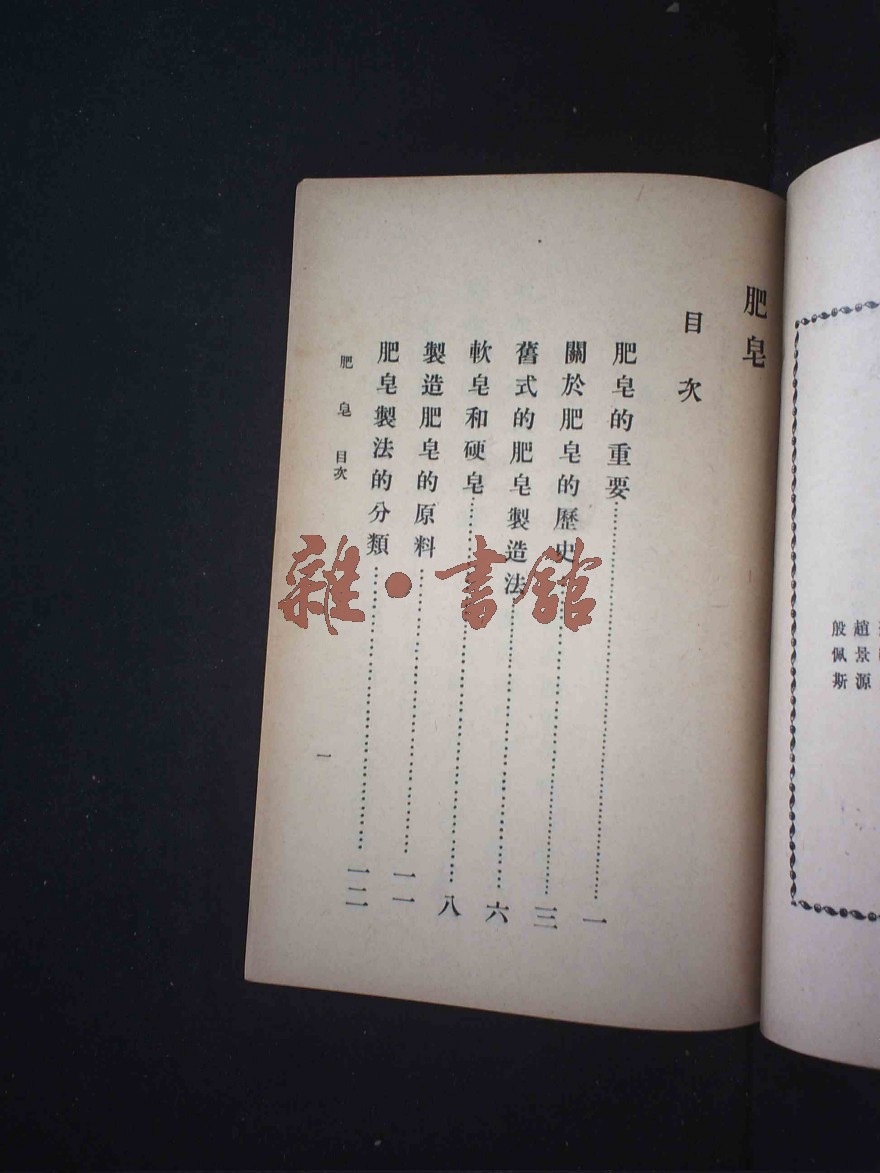 趙景源
殷佩斯
肥皂
目次
肥皂的重要……一
關於肥皂的歷史……三
舊式的肥皂製造法……六
軟皂和硬皂……八
製造肥皂的原料……一一
肥皂製法的分類……一二
肥皂 目次
一
雜·書館